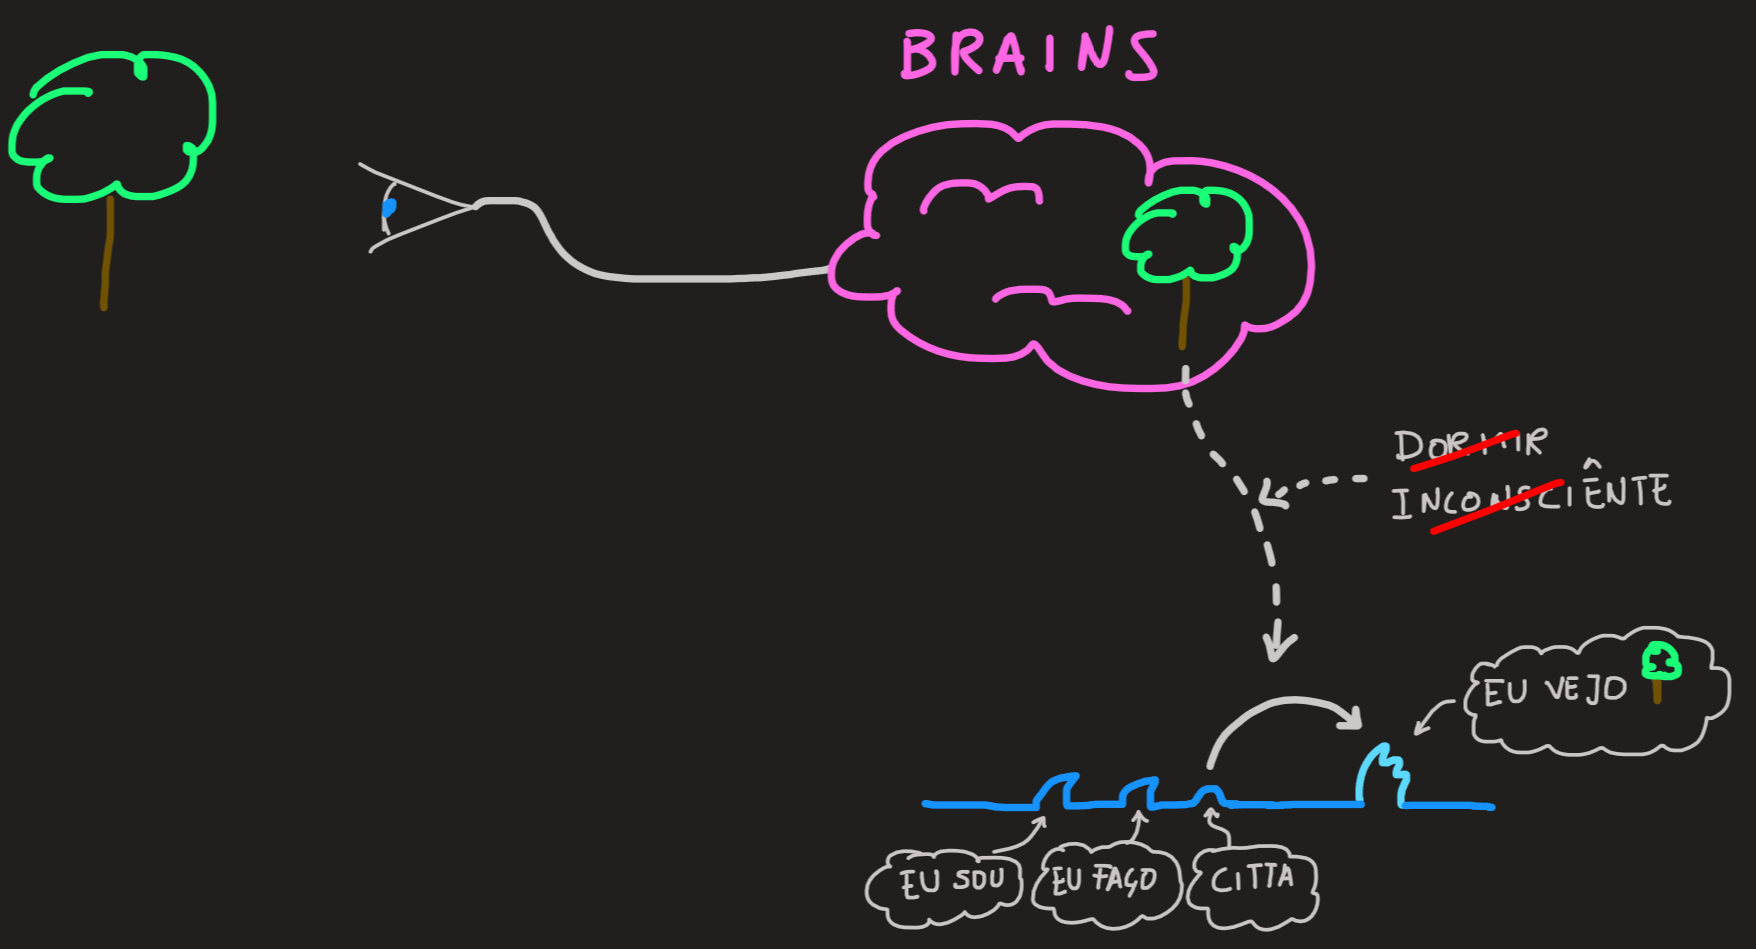 BRAINS
DORMIR
INCONSCIÊNTE
EU VEJO
EU SOU
EU FAÇO
CITTA